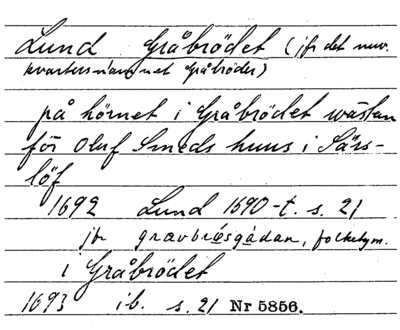 Lund Gråbrödet (jfr det nuv.
kvartersnamnet Gråbröder)
på hörnet i Gråbrödet wästan
för Oluf Smeds huus i Särs-
löf
1692 Lund 1690-t. s. 21
jfr gravbrösgådan, folketym.
i Gråbrödet
1693 ib. s. 21 Nr 5856.